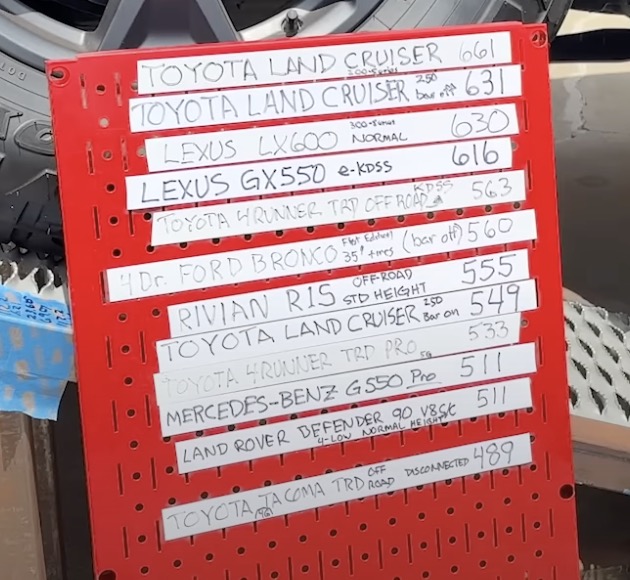 TOYOTA LAND CRUISER 300-Series 661
TOYOTA LAND CRUISER 250 bar off 631
LEXUS LX600 300-Series NORMAL 630
LEXUS GX550 e-KDSS 616
TOYOTA 4RUNNER TRD OFF ROAD KDSS 563
4 Dr. FORD BRONCO First Edition 35" tires (bar off) 560
RIVIAN R1S OFF-ROAD STD HEIGHT 555
TOYOTA LAND CRUISER 250 Bar on 549
TOYOTA 4RUNNER TRD PRO 5G 533
MERCEDES-BENZ G550 Pro 511
LAND ROVER DEFENDER 90 V8 4-LOW NORMAL HEIGHT 511
TOYOTA TACOMA (4G) TRD OFF ROAD DISCONNECTED 489